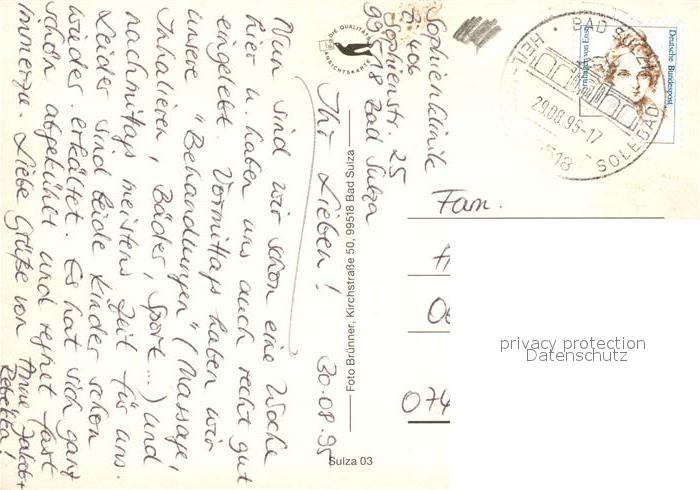 Sophienklinik
Zi. 406
Sophienstr. 25
99518 Bad Sulza
30.08.95
Ihr Lieben!
Nun sind wir schon eine Woche
hier u. haben uns auch recht gut
eingelebt. Vormittags haben wir
unsere "Behandlungen" (Massage,
Inhalieren, Bäder, Sport...) und
nachmittags meistens Zeit für uns.
Leider sind beide Kinder schon
wieder erkältet. Es hat sich ganz
schön abgekühlt und regnet fast
immerzu. Liebe Grüße von
Rebekka!
DIE QUALITÄTS
ANSICHTSKARTE
Foto Brünner, Kirchstraße 50, 99518 Bad Sulza
Sulza 03
Deutsche Bundespost
BAD SULZA
29.08.95-17
SOLEBAD
518
Fam.
074
privacy protection
Datenschutz